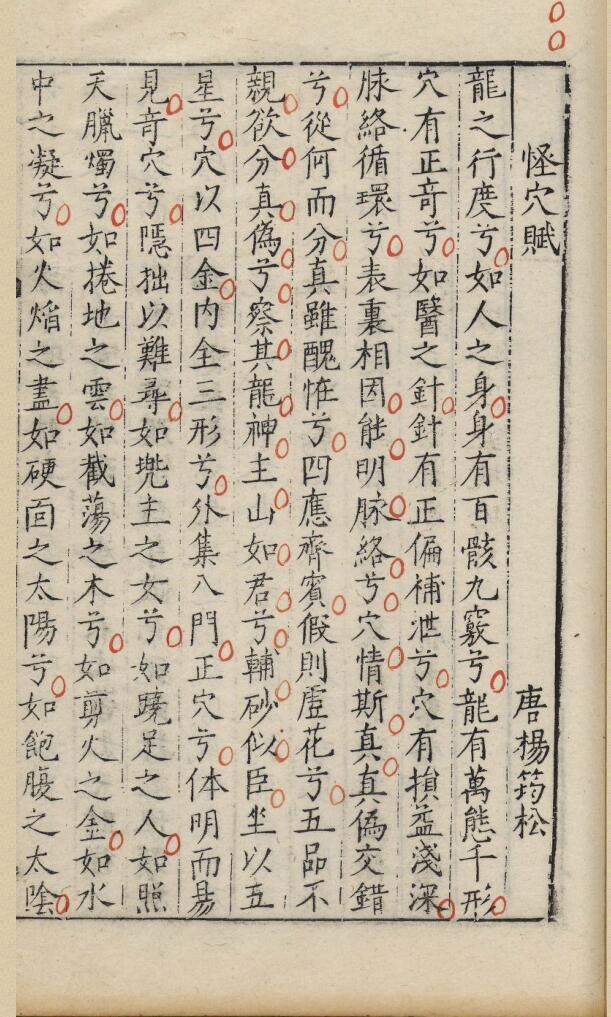 怪穴賦 唐楊筠松
龍之行度兮如人之身身有百骸九竅兮龍有萬態千形
穴有正竒兮如醫之針針有正偏補泄兮穴有損益淺深
脉絡循環兮表裏相因能明脉絡兮穴情斯真真偽交錯
兮從何而分真雖醜怪兮四應齊賓假則虛花兮五品不
親欲分真偽兮察其龍神主山如君兮輔砂似臣坐以五
星兮穴以四金内全三形兮外集八門正穴兮体明而易
見竒穴兮隱拙以難尋如兠主之女兮如蹺足之人如照
天臘燭兮如捲地之雲如截蕩之木兮如剪火之金如水
中之凝兮如火熖之盡如硬面之太陽兮如飽腹之太陰